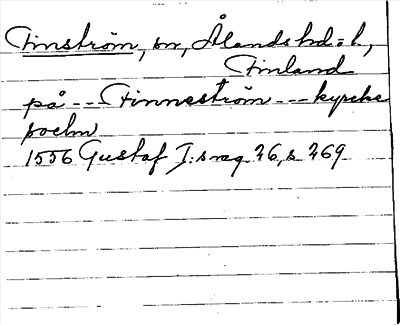 Finström, sn, Ålands hd o. l.,
Finland
på --- Finneström --- kyrcke
soelm
1556 Gustaf I:s reg 26, s 269